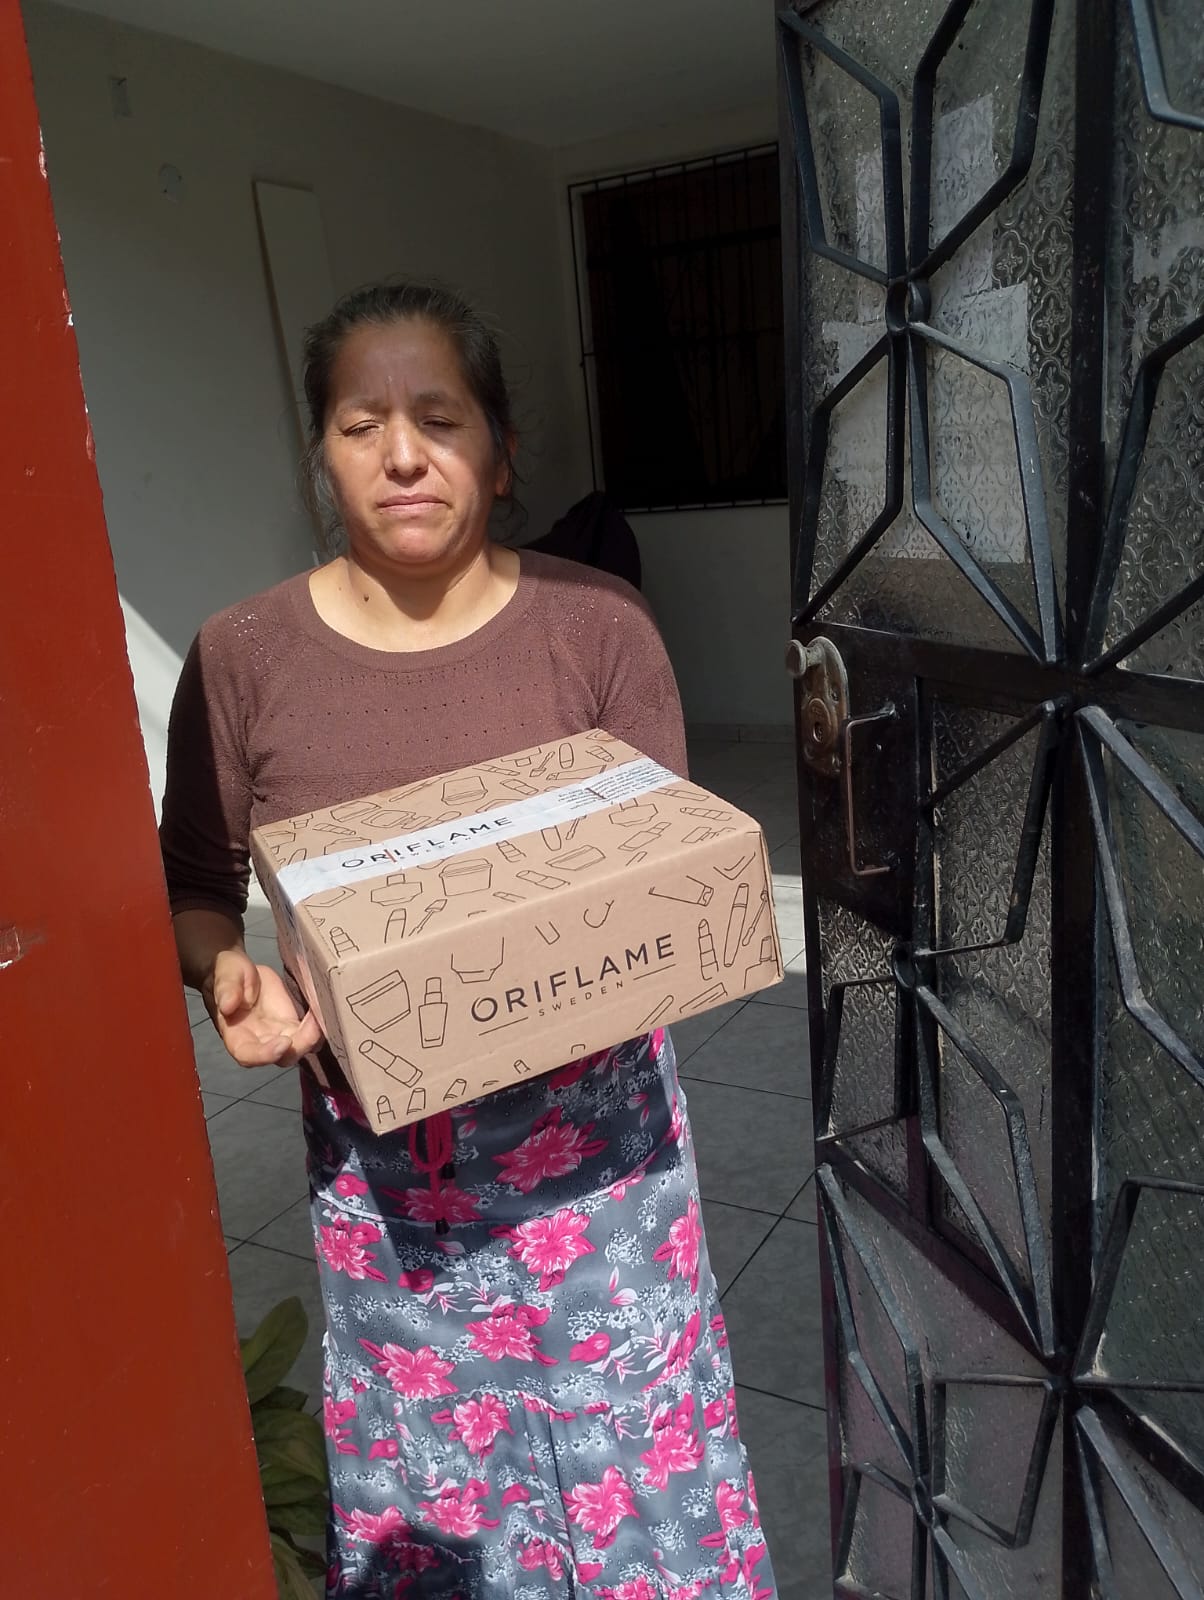 ORIFLAME
SWEDEN
ORIFLAME
SWEDEN